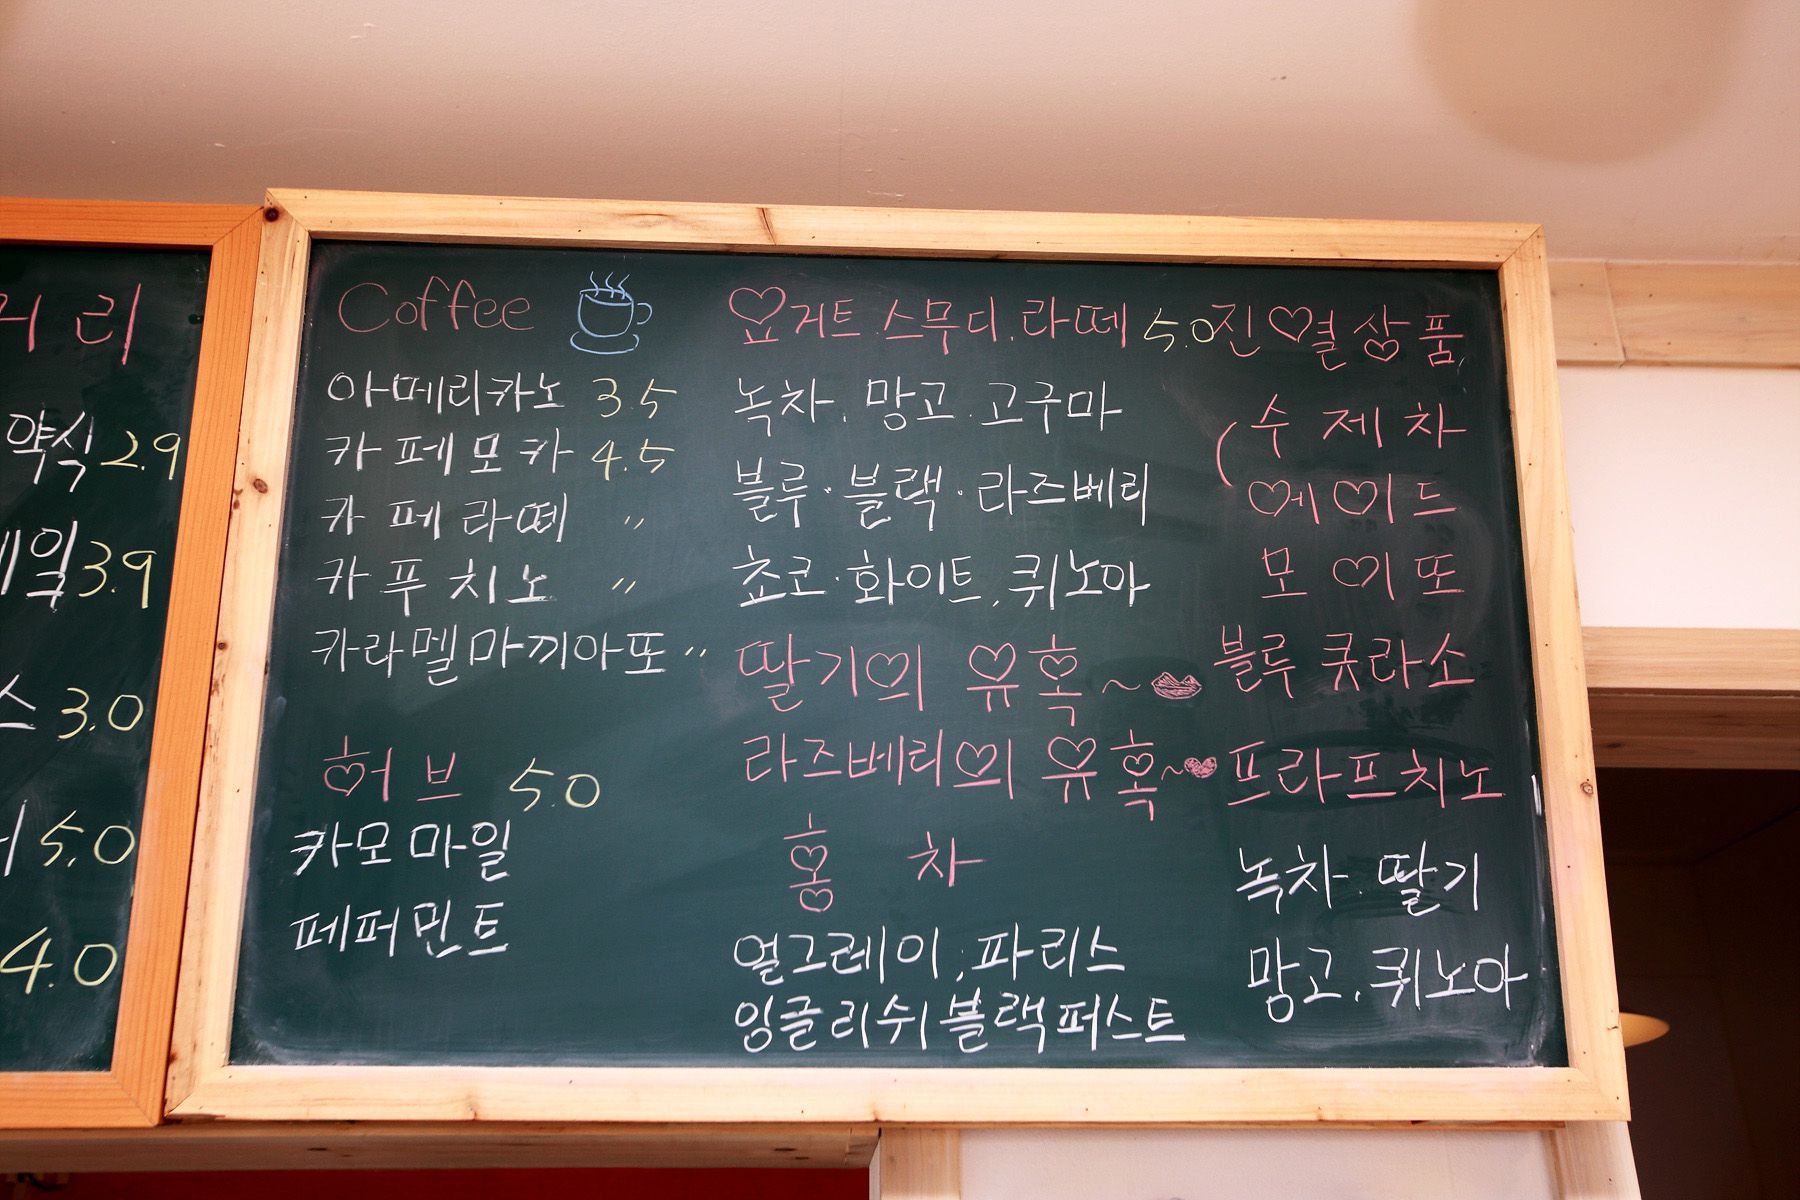 거리
약식 2.9
일 3.9
스 3.0
5.0
4.0
Coffee
아메리카노 3.5
카페모카 4.5
카페라떼 〃
카푸치노 〃
카라멜마끼아또 〃
허브 5.0
카모마일
페퍼민트
요거트.스무디.라떼 5.0
녹차. 망고. 고구마
블루·블랙·라즈베리
쵸코·화이트, 퀴노아
딸기의 유혹~
라즈베리의 유혹~
홍차
얼그레이, 파리스
잉글리쉬블랙퍼스트
진열상품
(수제차
에이드
모이또
블루큐라소
프라프치노
녹차. 딸기
망고, 퀴노아